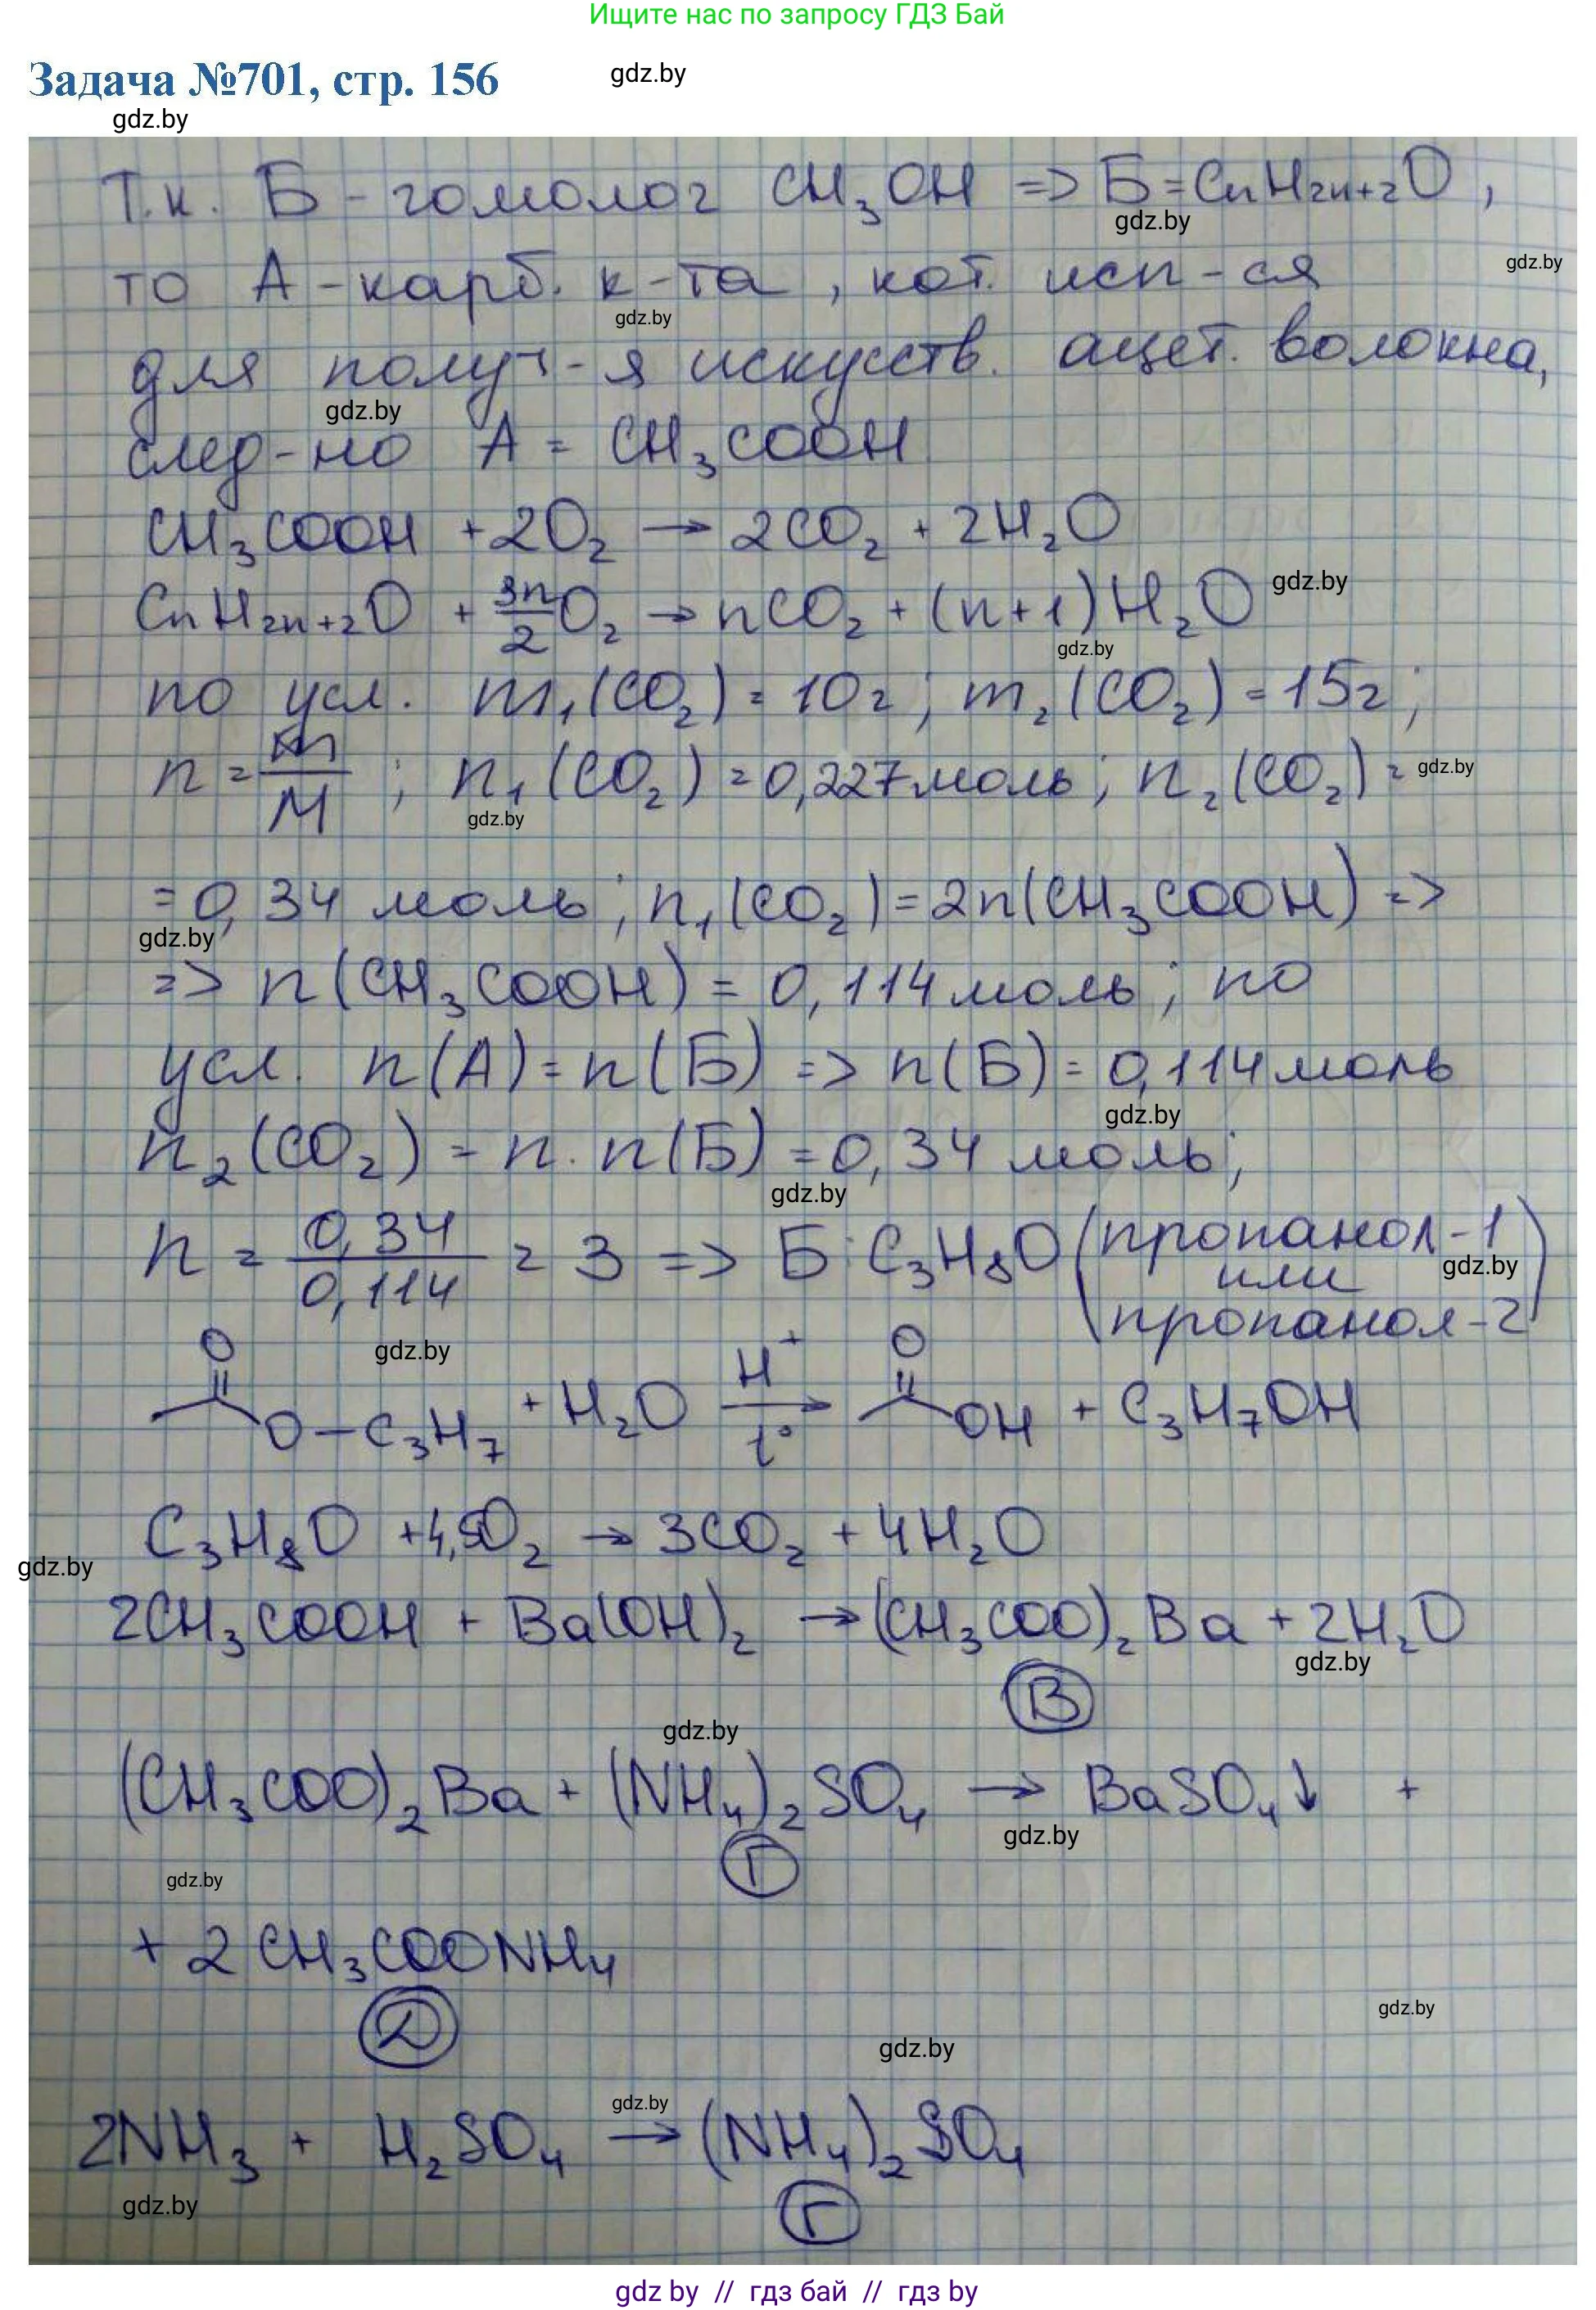 Ищите нас по запросу ГДЗ Бай
Задача №701, стр. 156
gdz.by
gdz.by
Т.к. Б - гомолог CH₃OH => Б = CnH2n+2O,
gdz.by
gdz.by
то А - карб. к-та, кот. исп-ся
gdz.by
для получ-я искусств. ацет. волокна,
gdz.by
след-но А = CH₃COOH
CH₃COOH + 2O₂ → 2CO₂ + 2H₂O
gdz.by
CnH2n+2O + 3n/2 O₂ → nCO₂ + (n+1)H₂O
gdz.by
по усл. m₁(CO₂) = 10г; m₂(CO₂) = 15г;
n = m/M; n₁(CO₂) = 0,227 моль; n₂(CO₂) =
gdz.by
gdz.by
= 0,34 моль; n₁(CO₂) = 2n(CH₃COOH) =>
gdz.by
=> n(CH₃COOH) = 0,114 моль; по
усл. n(А) = n(Б) => n(Б) = 0,114 моль
gdz.by
n₂(CO₂) = n · n(Б) = 0,34 моль;
gdz.by
n = 0,34/0,114 = 3 => Б: C₃H₈O (пропанол-1
или
gdz.by
пропанол-2)
gdz.by
O O
O–C₃H₇ + H₂O H⁺ → t° OH + C₃H₇OH
C₃H₈O + 4,5O₂ → 3CO₂ + 4H₂O
gdz.by
2CH₃COOH + Ba(OH)₂ → (CH₃COO)₂Ba + 2H₂O
gdz.by
В
gdz.by
(CH₃COO)₂Ba + (NH₄)₂SO₄ → BaSO₄↓ +
gdz.by
Г
gdz.by
+ 2 CH₃COONH₄
Д
gdz.by
gdz.by
gdz.by
2NH₃ + H₂SO₄ → (NH₄)₂SO₄
gdz.by
Г
gdz by // гдз бай // гдз by